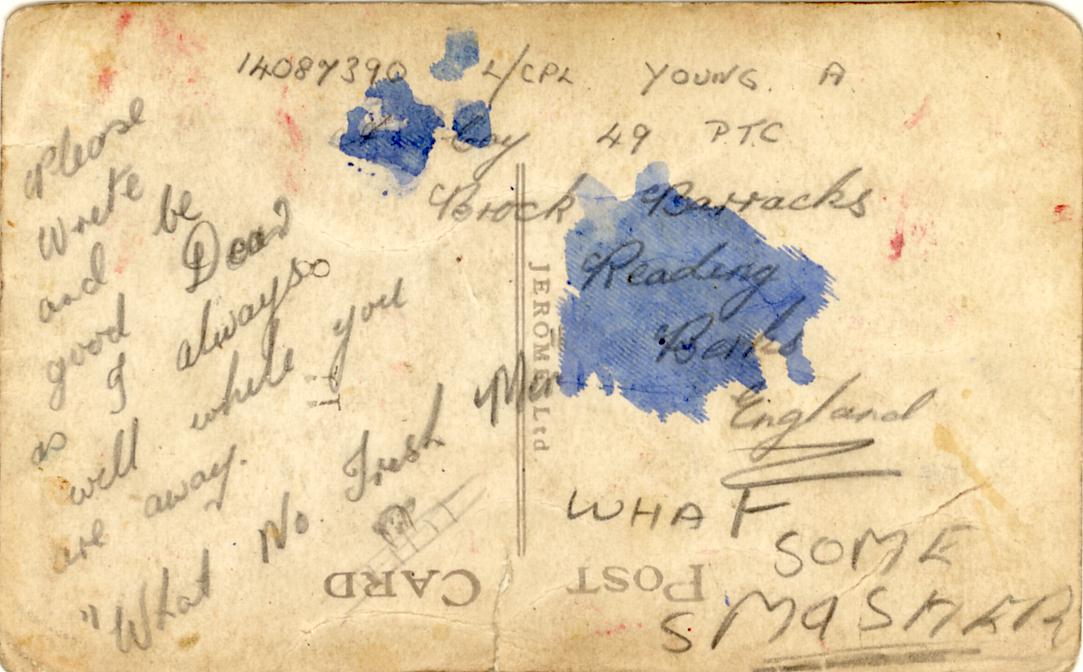 14087390 L/CPL YOUNG. A
Coy 49 PTC
Brock Barracks
Reading
Berks
England
WHAT
SOME
SMASHER
Please
Write
and be
good Dear
as I always
will while you
are away.
"What No Fresh Men
JEROME Ltd
POST CARD